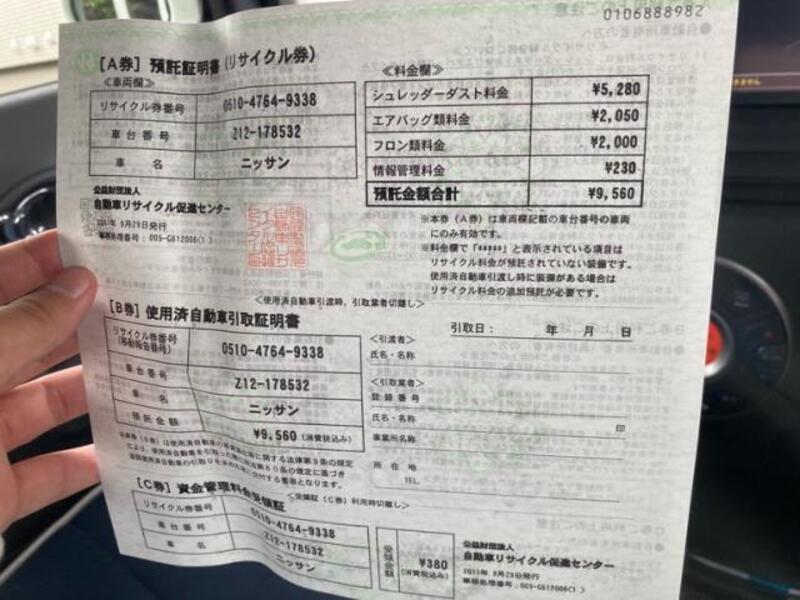 0106888982
[A券] 預託証明書(リサイクル券)
≪車両欄≫
リサイクル券番号 0510-4764-9338
車台番号 Z12-178532
車名 ニッサン
≪料金欄≫
シュレッダーダスト料金 ¥5,280
エアバッグ類料金 ¥2,050
フロン類料金 ¥2,000
情報管理料金 ¥230
預託金額合計 ¥9,560
公益財団法人
自動車リサイクル促進センター
9月29日発行
事務処理番号:
※本券(A券)は車両欄記載の車台番号の車両
にのみ有効です。
※料金欄で「*****」と表示されている項目は
リサイクル料金が預託されていない装備です。
使用済自動車引渡し時に装備がある場合は
リサイクル料金の追加預託が必要です。
<使用済自動車引渡時、引取業者切離し>
[B券] 使用済自動車引取証明書
リサイクル券番号
(移動報告番号) 0510-4764-9338
車台番号 Z12-178532
車名 ニッサン
預託金額 ¥9,560(消費税込み)
引取日: 年 月 日
<引渡者>
氏名・名称
<引取業者>
登録番号
氏名・名称 印
事業所名称
所在地
TEL.
[C券] 資金管理料金受領証
<受領証(C券)利用時切離し>
リサイクル券番号 0510-4764-9338
車台番号 Z12-178532
車名 ニッサン
受領金額 ¥380
(消費税込み)
公益財団法人
自動車リサイクル促進センター
9月29日発行
事務処理番号: